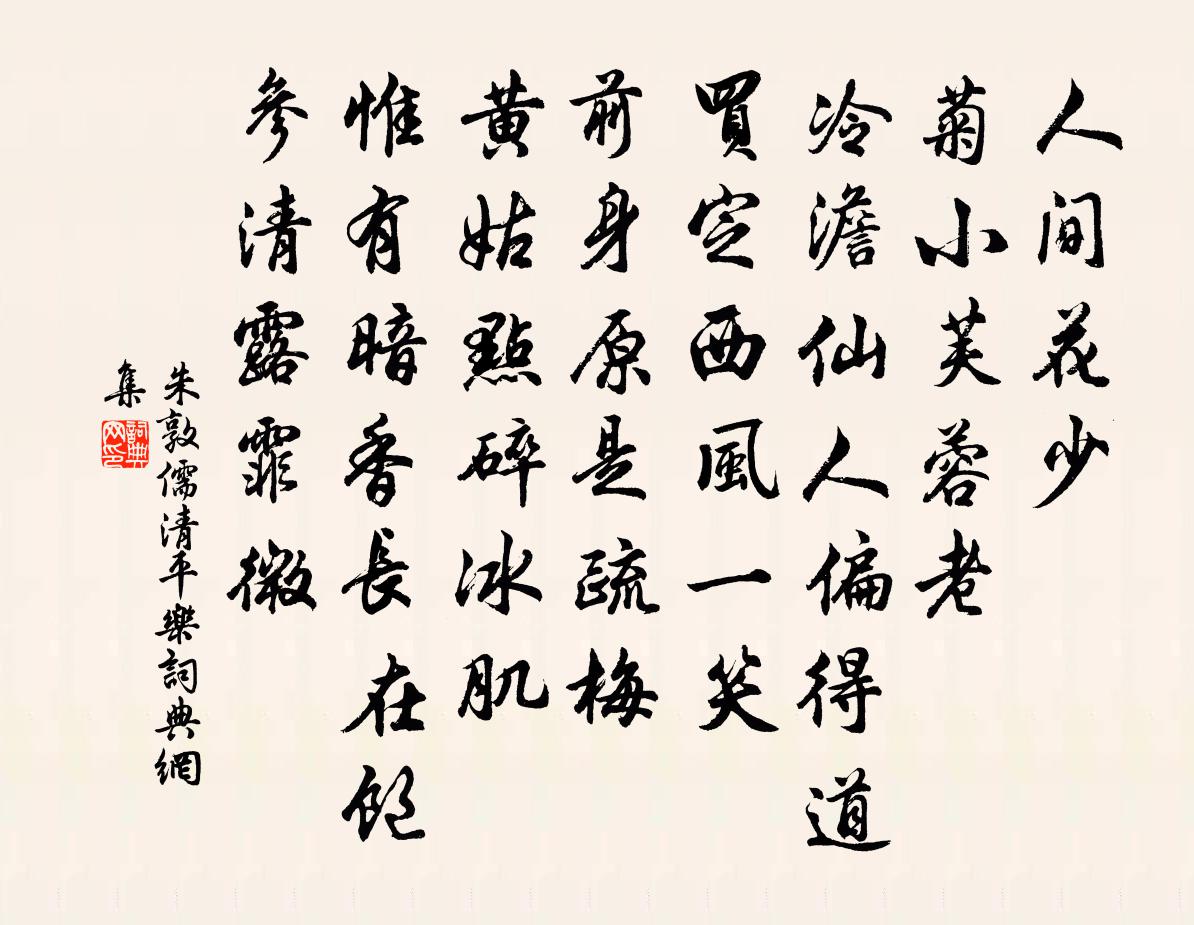 人間花少
菊小芙蓉老
冷澹仙人偏得道
買定西風一笑
前身原是疏梅
黃姑點碎冰肌
惟有暗香長在
飽參清露霏微
朱敦儒清平樂詞典網
集
詞典
网印